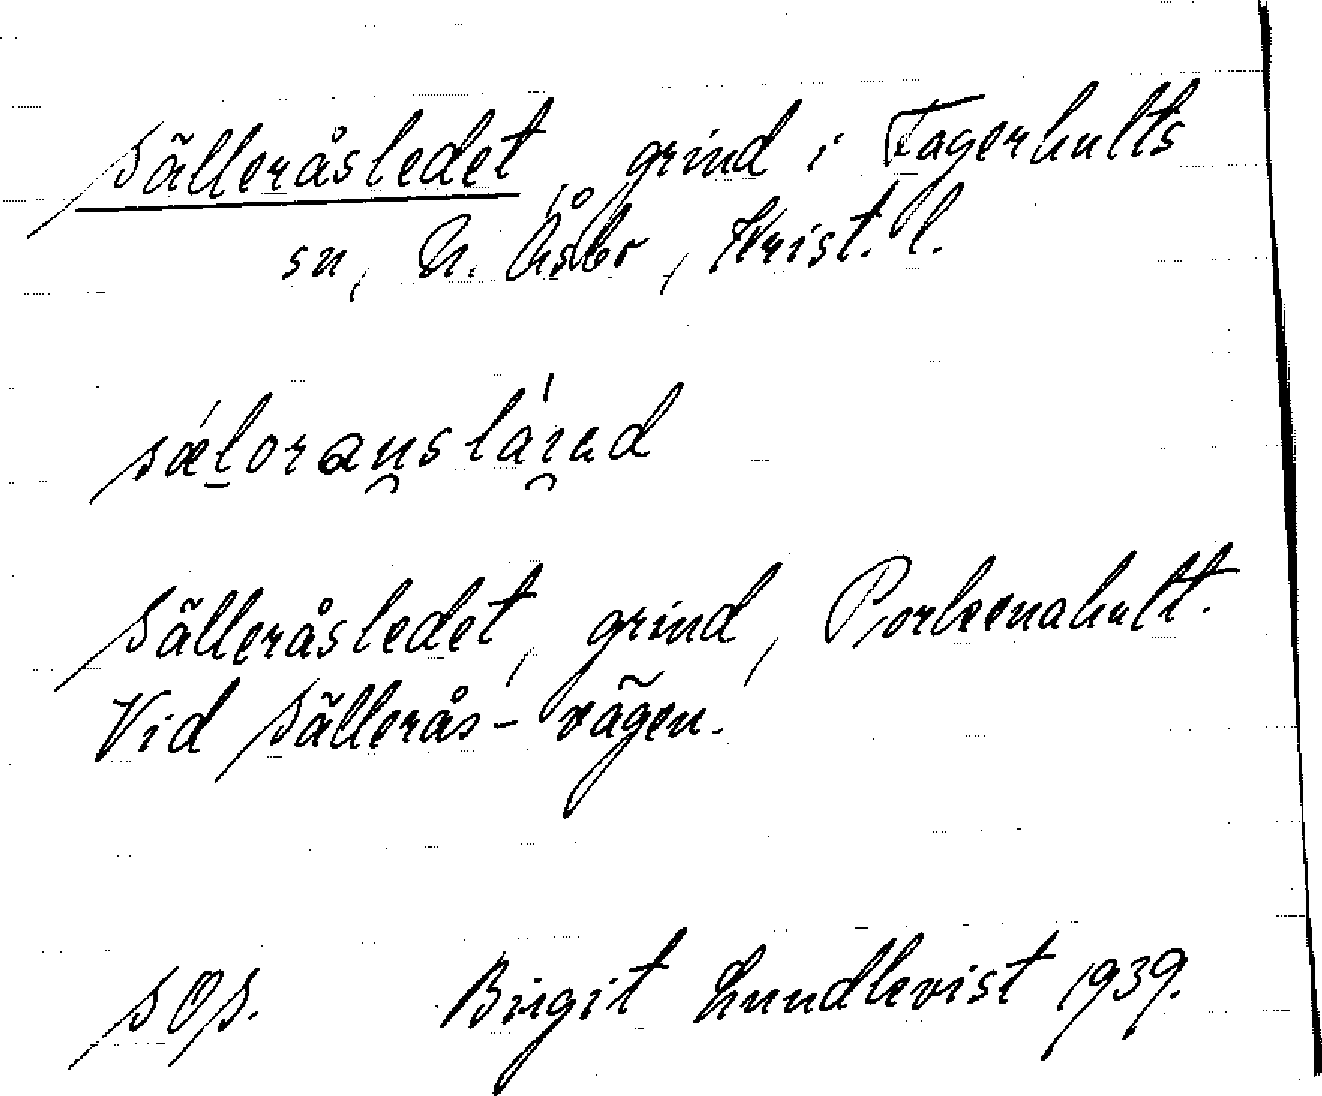 Sälleråsledet, grind i Fagerhults
sn, N. Åsbo, Krist. l.
Sälleråsledet, grind, Porkenahult.
Vid Sällerås-vägen.
SOS. Birgit Lundkvist 1939.